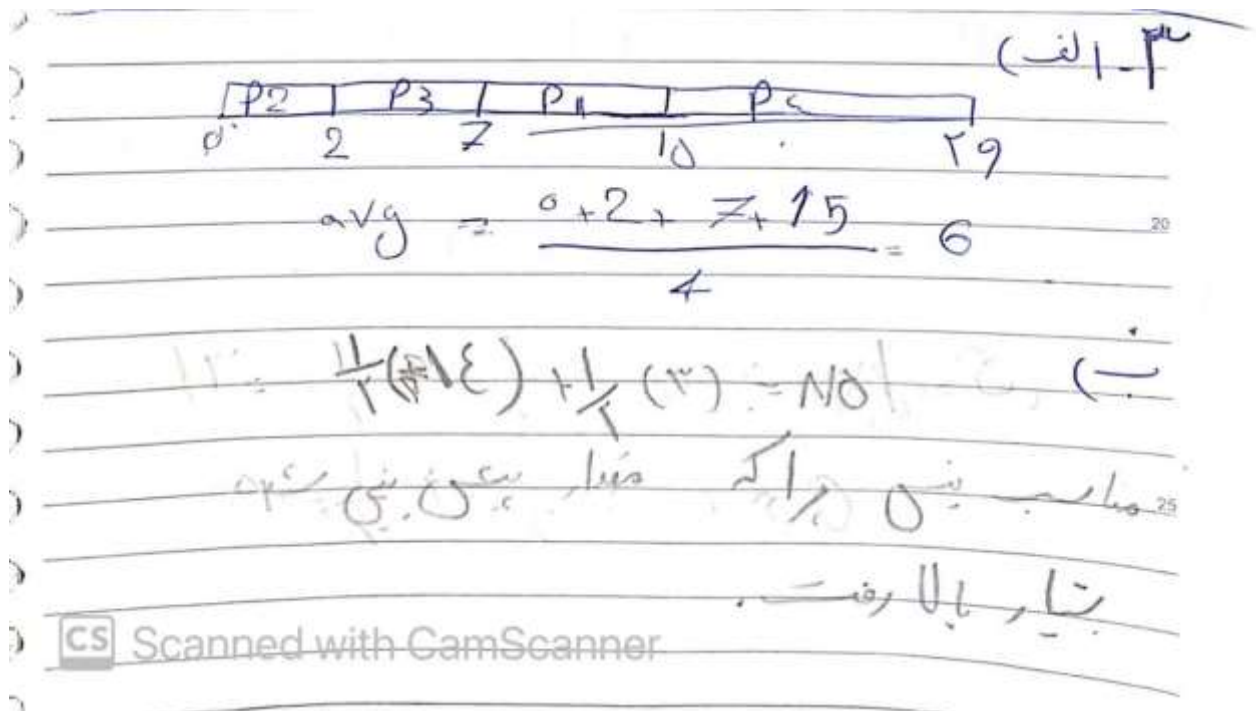 ۳-الف)
P2 P3 P1 P4
0 2 7 15 ۲۹
avg = 0+2+7+15 / 4 = 6
20
ب)
1/۲ (۱٤) + 1/۲ (۳) = ۸٫۵
مناسب نیست چراکه مقدار پیش بینی شده
25
بسیار بالا رفت.
CS Scanned with CamScanner